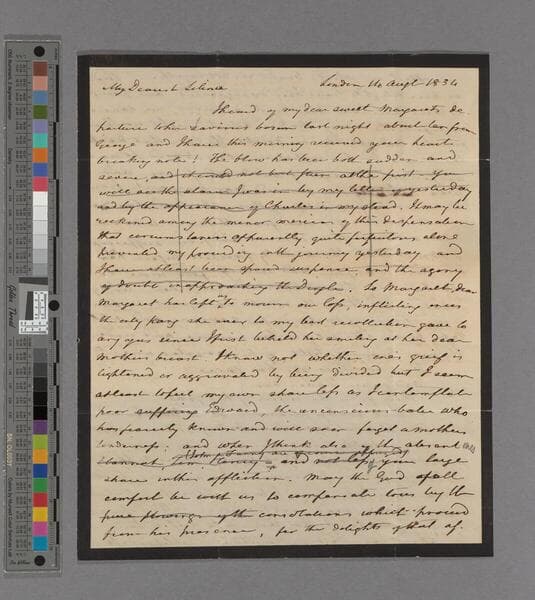 My Dearest Selina London 14 Augt 1834
I heard of my dear sweet Margarets de
parture to her Saviours bosom last night about ten from
George and I have this morning received your heart
breaking note! The blow has been both sudden and
severe, and it could not but from at the first You
will see the alarm I was in by my letter of yesterday
and by the appearance of Charles in my stead. It may be
reckoned among the minor mercies of this dispensation
that circumstances apparently quite fortuitous alone
prevented my proceeding on the journey yesterday and
I have at least been spared suspense, and the agony
of doubt in approaching the So Margaret, dear
Margaret has left us to mourn our loss, inflicting even
the only pang she ever to my best recollection gave to
any eyes since I first beheld her smiling at her dear
Mothers breast. I know not whether ones grief is
lightened or aggravated by being divided but I seem
at least to feel my own share less as I contemplate
poor suffering Edward the unconscious babe who
has scarcely known and will soon forget a mothers
tenderness; and when I think also of the absent
and not less of your large
share in this affliction. May the God of all
comfort be with us to compensate to us by the
pure flowings of the consolations which proceed
from his presence, for the delights of that af